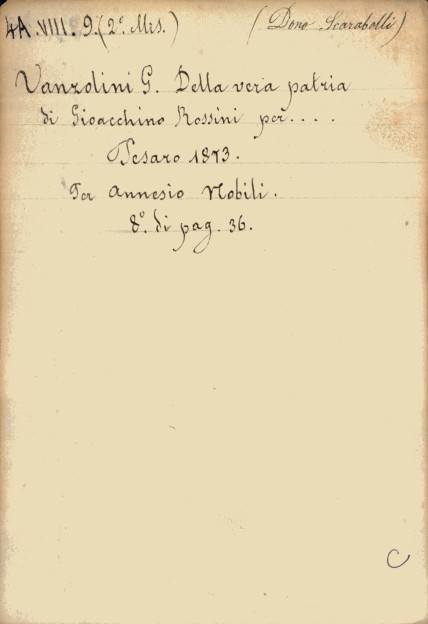 4A.VIII.9.(2º. Mrs.) (Dono Scarabelli)
Vanzolini G. Della vera patria
di Gioacchino Rossini per....
Pesaro 1873.
Per Annesio Nobili.
8º. di pag. 36.
C